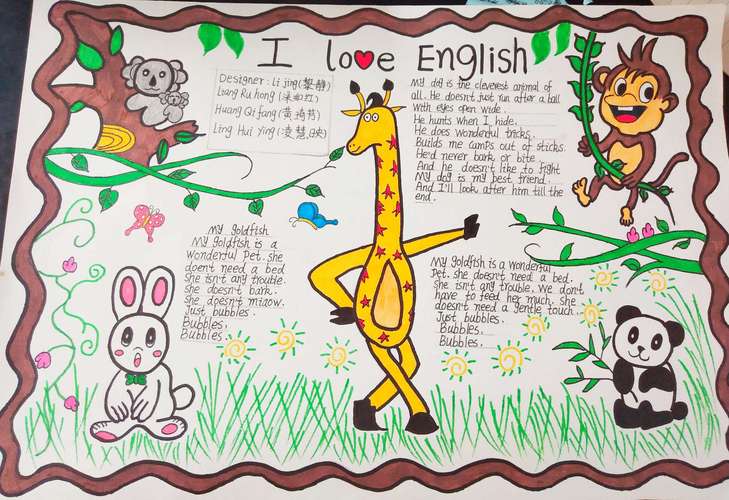 I love English
Designer: Li jing(黎静)
Liang Ru hong (梁如红)
Huang Qi fang(黄绮芳)
Ling Hui Ying(凌慧映)
My dog is the cleverest animal of
all. He doesn't just run after a ball
With eyes open wide.
He hunts when I hide.
He does wonderful tricks.
Builds me camps out of sticks.
He'd never bark or bite.
And he doesn't like to fight
My dog is my best friend.
And I'll look after him till the
end.
My goldfish
My goldfish is a
wonderful Pet. She
doen't need a bed
She isn't any trouble.
She doesn't bark.
She doesn't miaow.
Just bubbles.
Bubbles.
Bubbles.
My goldfish is a wonderful
Pet. She doesn't need a bed.
She isn't any trouble. We don't
have to feed her much. She
doesn't need a gentle touch.
Just bubbles.
Bubbles.
Bubbles.